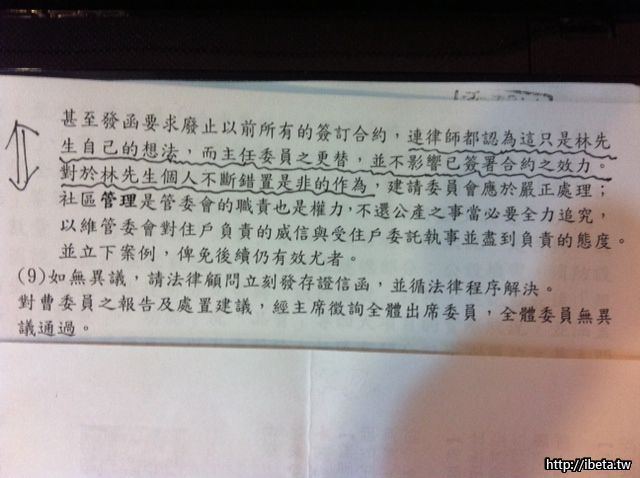 甚至發函要求廢止以前所有的簽訂合約，連律師都認為這只是林先
生自己的想法，而主任委員之更替，並不影響已簽署合約之效力。
對於林先生個人不斷錯置是非的作為，建請委員會應於嚴正處理；
社區管理是管委會的職責也是權力，不還公產之事當必要全力追究，
以維管委會對住戶負責的威信與受住戶委託執事並盡到負責的態度。
並立下案例，俾免後續仍有效尤者。
(9)如無異議，請法律顧問立刻發存證信函，並循法律程序解決。
對曹委員之報告及處置建議，經主席徵詢全體出席委員，全體委員無異
議通過。
http://ibeta.tw